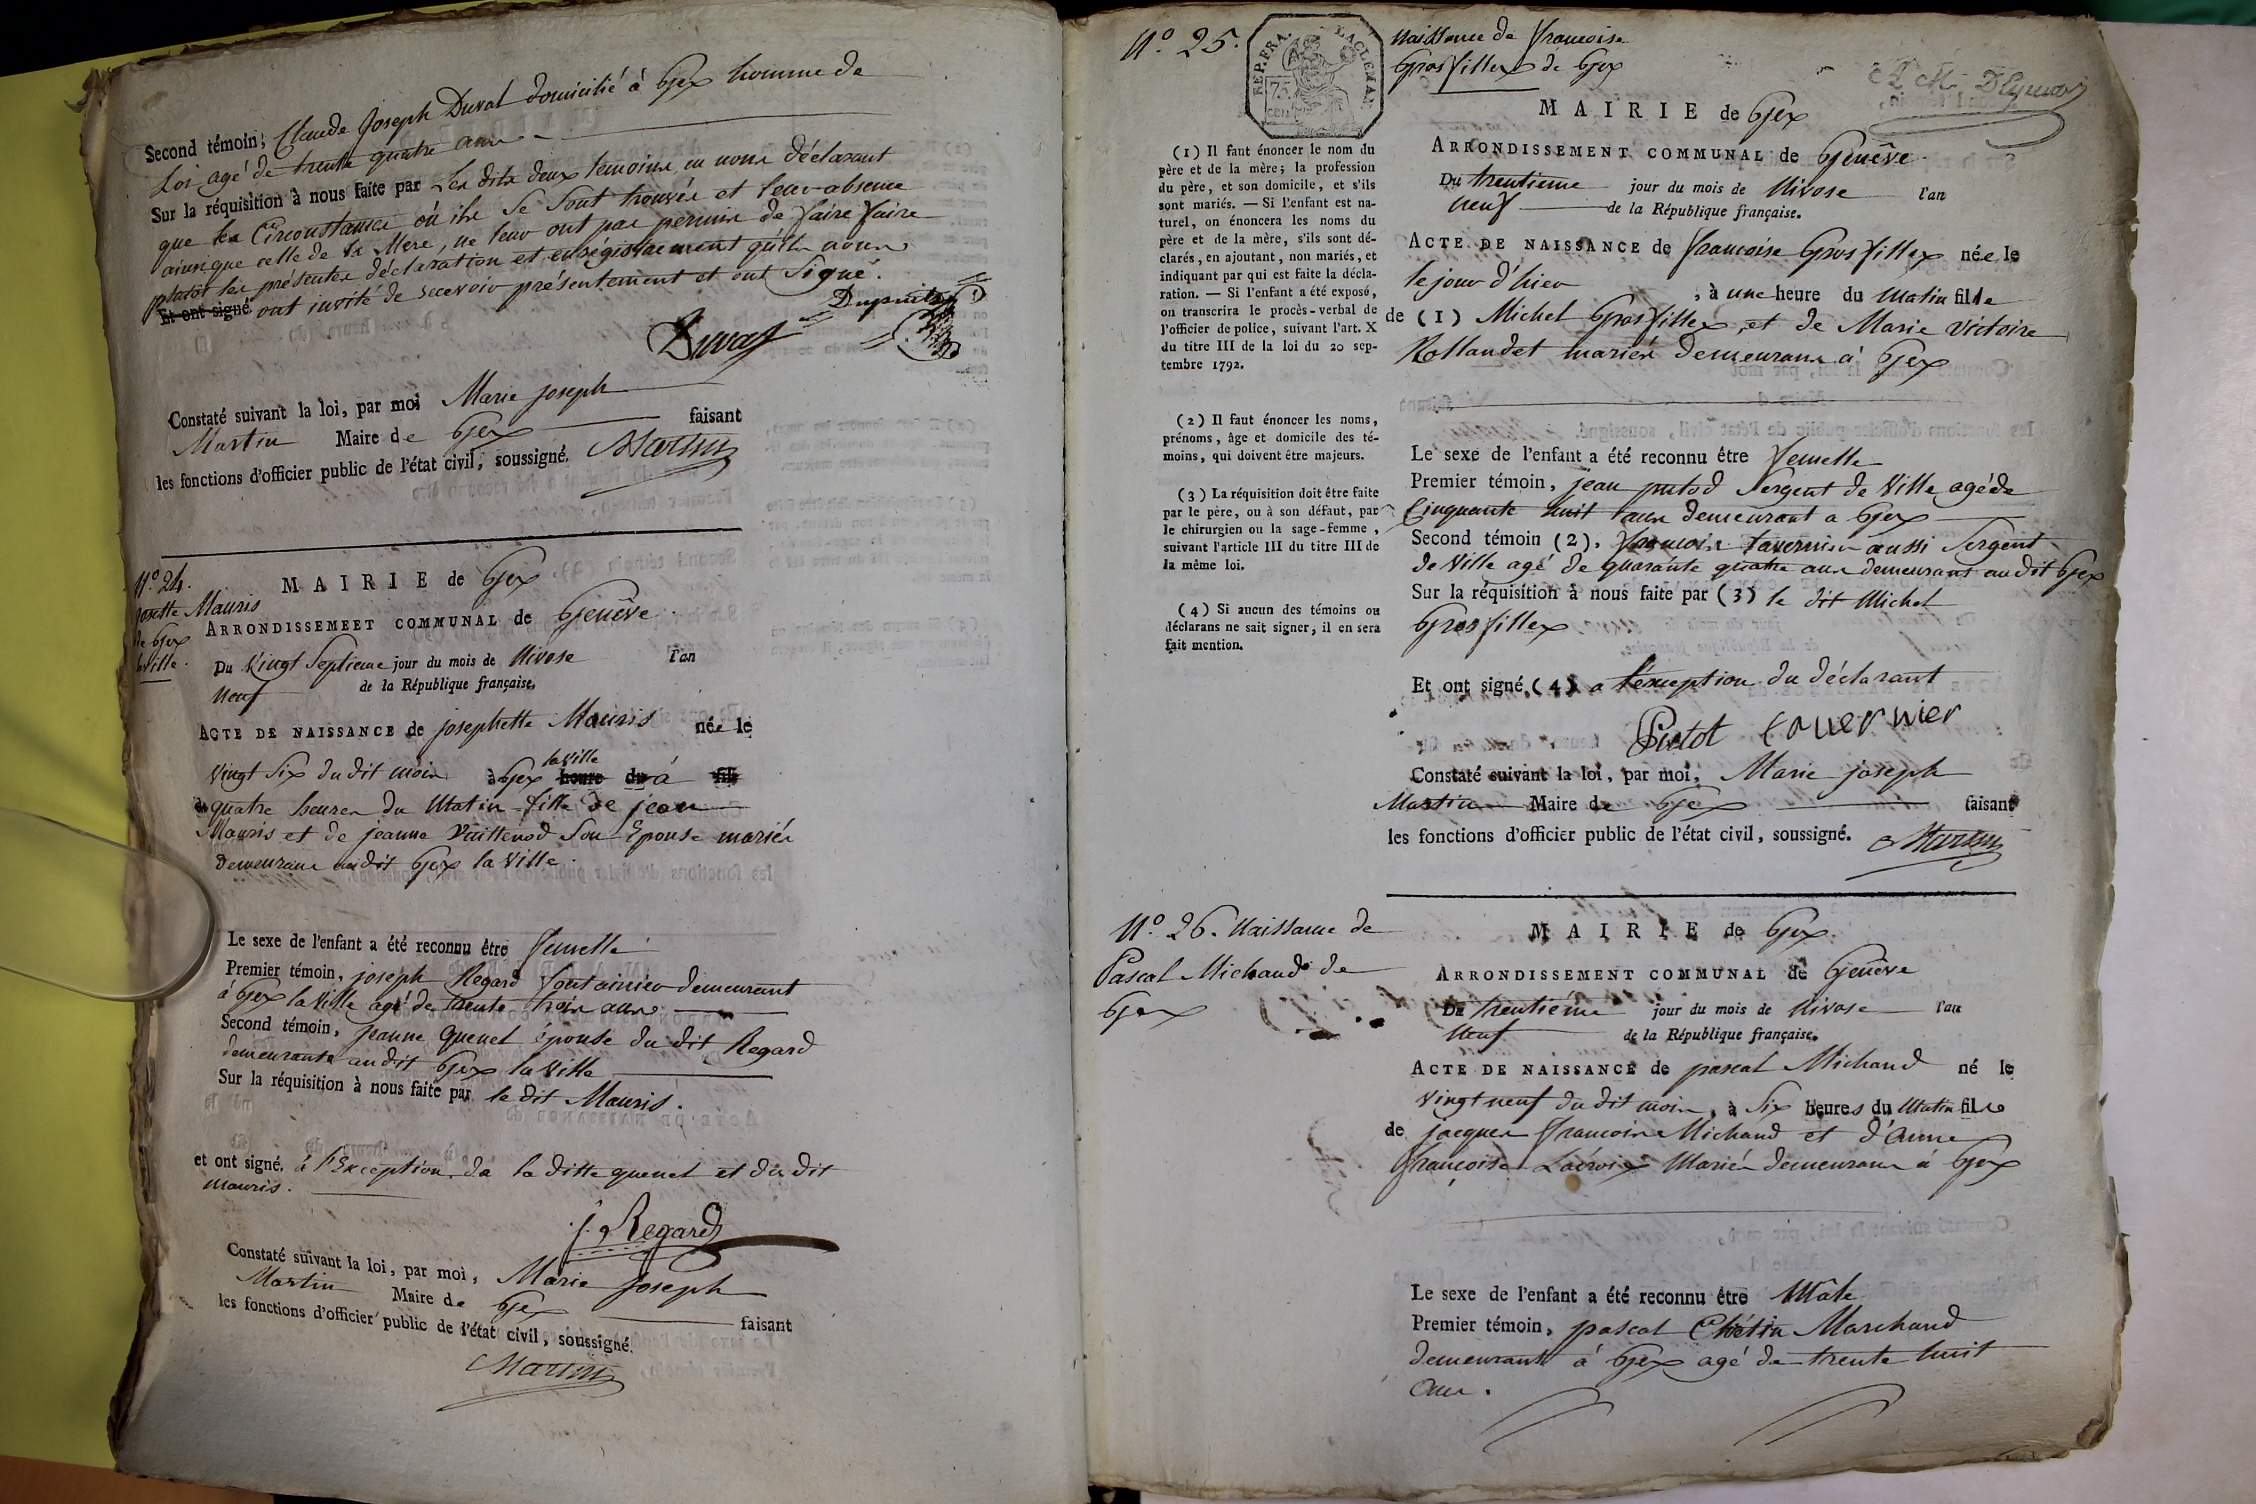 Second témoin, Claude Joseph Duval domicilié à Gex homme de
Loi agé de trente quatre ans
Sur la réquisition à nous faite par Les dits deux temoins en nous déclarant
que les Circonstances où ils se sont trouvés et leur absence
ainsique celle de la Mere, ne leur ont pas permis de faire faire
plutot les présentes déclaration et enrégistrement qu'ils nous
Et ont signé. ont invité de recevoir présentement et ont Signé.
Duval
Constaté suivant la loi, par moi Marie Joseph
Martin Maire de Gex faisant
les fonctions d'officier public de l'état civil, soussigné. Martin
N.° 24.
Josette Mauris
de Gex
la ville.
MAIRIE de Gex
ARRONDISSEMEET COMMUNAL de Genêve.
Du Vingt Septieme jour du mois de Nivose l'an
Neuf de la République française.
ACTE DE NAISSANCE de josephette Mauris née le
la ville
Vingt Six du dit mois à Gex heure du à fil
de quatre heures du Matin fille de jean
Mauris et de jeanne Vuittenod Son Epouse mariés
Demeurans audit Gex la Ville.
Le sexe de l'enfant a été reconnu être femelle
Premier témoin, joseph Regard fontainier demeurant
à Gex la Ville agé de trente trois ans
Second témoin, jeanne quenet épouse du dit Regard
demeurante audit Gex la Ville
Sur la réquisition à nous faite par le dit Mauris.
et ont signé, à l'Exception de la ditte quenet et du dit
Mauris.
j. Regard
Constaté suivant la loi, par moi, Marie Joseph
Martin Maire de Gex faisant
les fonctions d'officier public de l'état civil, soussigné.
Martin
N.° 25.
REP. FRA.
75
CEN
Naissance de francoise
Gros fillex de Gex
MAIRIE de Gex
ARRONDISSEMENT COMMUNAL de Genêve.
Du trentieme jour du mois de Nivose l'an
neuf de la République française.
ACTE DE NAISSANCE de francoise Gros fillex née le
le jour d'hier, à une heure du Matin fille
de (1) Michel Gros fillex et de Marie Victoire
Rollandet mariés demeurans à Gex
Le sexe de l'enfant a été reconnu être femelle
Premier témoin, jean putod Sergent de Ville agé de
Cinquante huit ans demeurant a Gex
Second témoin (2), françois tavernier aussi Sergent
de Ville agé de quarante quatre ans demeurant audit Gex
Sur la réquisition à nous faite par (3) le dit Michel
Gros fillex
Et ont signé, (4) a l'éxception du déclarant
Putot tavernier
Constaté suivant la loi, par moi, Marie joseph
Martin Maire de Gex faisant
les fonctions d'officier public de l'état civil, soussigné. Martin
(1) Il faut énoncer le nom du
père et de la mère; la profession
du père, et son domicile, et s'ils
sont mariés. — Si l'enfant est na-
turel, on énoncera les noms du
père et de la mère, s'ils sont dé-
clarés, en ajoutant, non mariés, et
indiquant par qui est faite la décla-
ration. — Si l'enfant a été exposé,
on transcrira le procès-verbal de
l'officier de police, suivant l'art. X
du titre III de la loi du 20 sep-
tembre 1792.
(2) Il faut énoncer les noms,
prénoms, âge et domicile des té-
moins, qui doivent être majeurs.
(3) La réquisition doit être faite
par le père, ou à son défaut, par
le chirurgien ou la sage-femme,
suivant l'article III du titre III de
la même loi.
(4) Si aucun des témoins ou
déclarans ne sait signer, il en sera
fait mention.
N.° 26. Naissance de
Pascal Michaud de
Gex
MAIRIE de Gex
ARRONDISSEMENT COMMUNAL de Genêve
Du trentiéme jour du mois de Nivose l'an
Neuf de la République française.
ACTE DE NAISSANCE de pascal Michaud né le
Vingt neuf du dit mois, à Six heures du Matin fils
de jacques francois Michaud et d'anne
françoise Lacroix Mariés demeurans à Gex
Le sexe de l'enfant a été reconnu être Mâle
Premier témoin, pascal Chétin Marchand
demeurant à Gex agé de trente huit
ans.